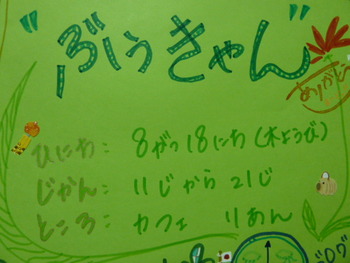 "ぶぅきゃん"
ありがとう
ひにち：8がつ18にち(木ようび)
じかん：11じから21じ
ところ：カフェ りあん
ブログ